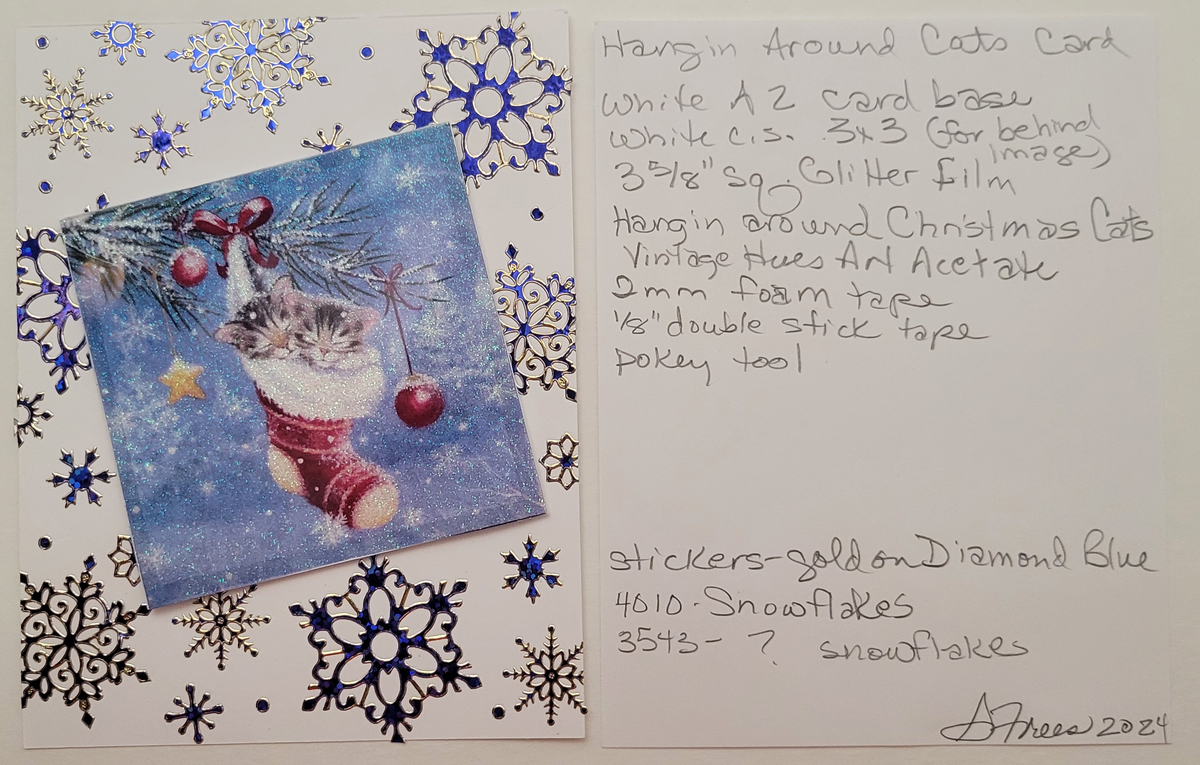 Hangin Around Cats Card
White A2 card base
White c.s. 3x3 (for behind image)
3 5/8" Sq. Glitter film
Hangin around Christmas Cats
Vintage Hues Art Acetate
2mm foam tape
1/8" double stick tape
pokey tool
stickers-gold on Diamond Blue
4010 - Snowflakes
3543 - ? snowflakes
Frees 2024